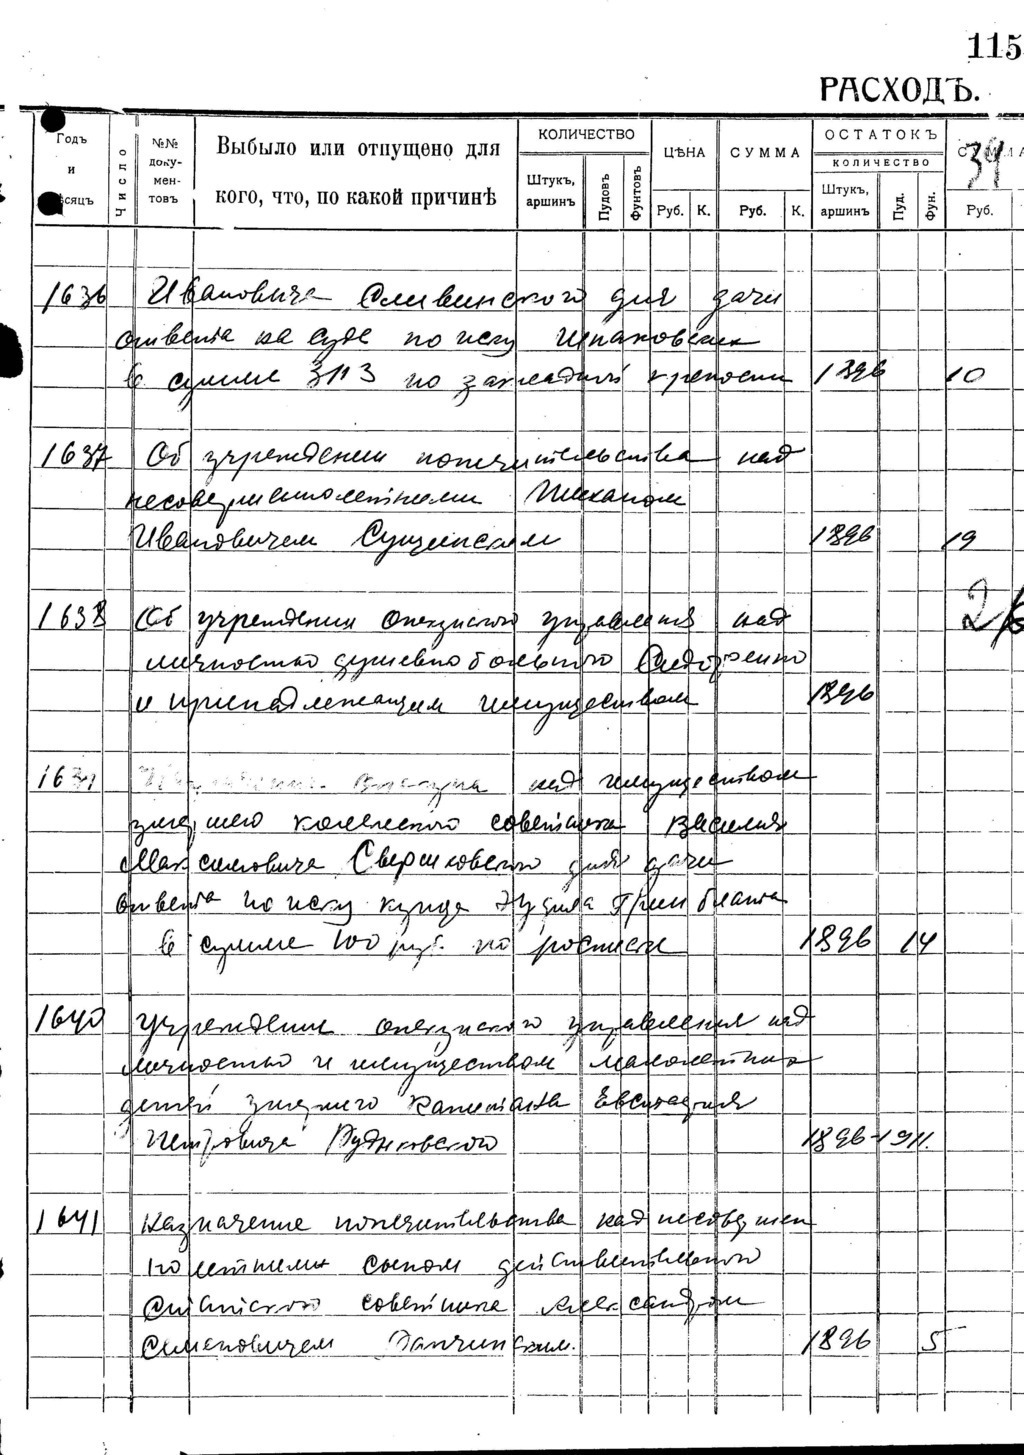 115
РАСХОДЪ.
Годъ и мѣсяцъ
Число
№№ документовъ
Выбыло или отпущено для кого, что, по какой причинѣ
КОЛИЧЕСТВО
Штукъ, аршинъ
Пудовъ
Фунтовъ
ЦѢНА
Руб. К.
СУММА
Руб. К.
ОСТАТОКЪ
КОЛИЧЕСТВО
Штукъ, аршинъ
Пуд.
Фун.
Руб.
34
1636 Ивановича Сливинского для дачи
ответа на суде по иску Шпаковских
в сумме 3113 по закладной крепости 1896 10
1637 Об учреждении попечительства над
несовершеннолетним
Ивановичем Сущинским 1896 19
1638 Об учреждении опекунского управления над
личностью душевно больного Сидоренко
и принадлежащим имуществом 1896
163 над имуществом
умершего коллежского советника Василия
Максимовича Сверчковского для дачи
ответа по иску купца Гринблата
в сумме 100 руб. по расписке 1896 14
1640 Учреждение опекунского управления над
личностью и имуществом малолетних
детей умершего капитана Евстафия
Петровича Рудковского 1896-1911.
1641 Назначение попечительства над несовершен
нолетним сыном действительного
статского советника Александром
Семеновичем 1896 5